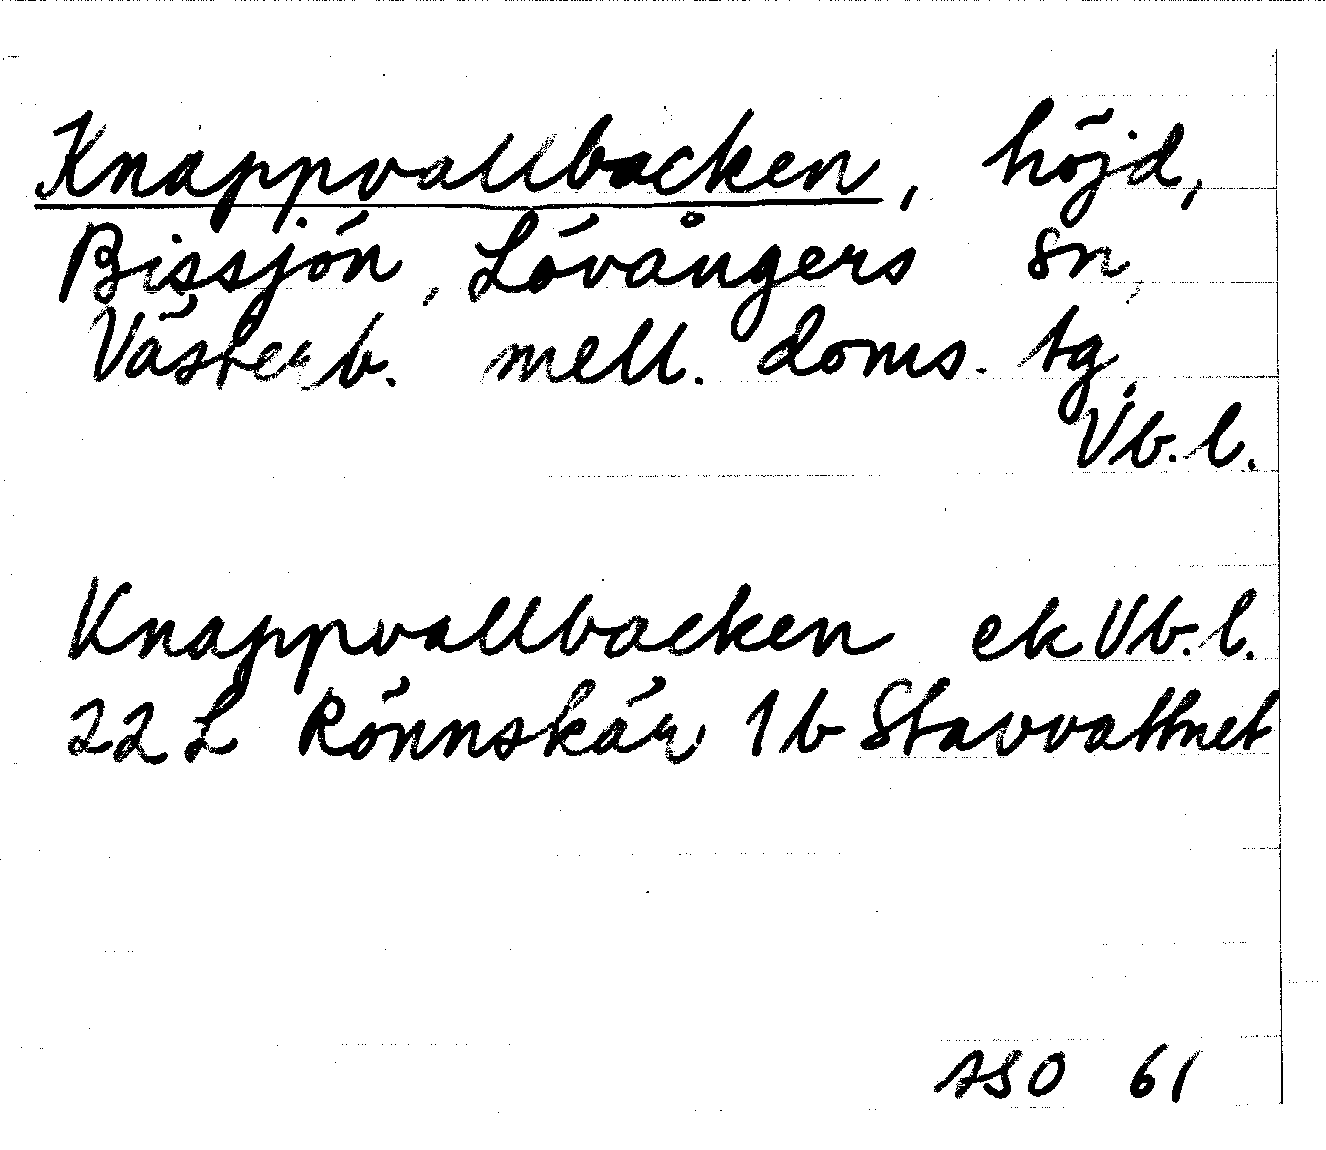 Knappvallbacken, höjd,
Bissjön, Lövångers sn,
Västerb. mell. doms. tg.
Vb.l.
Knappvallbacken ek Vb.l.
22 L Rönnskär 1b Stavvattnet
ASO 61